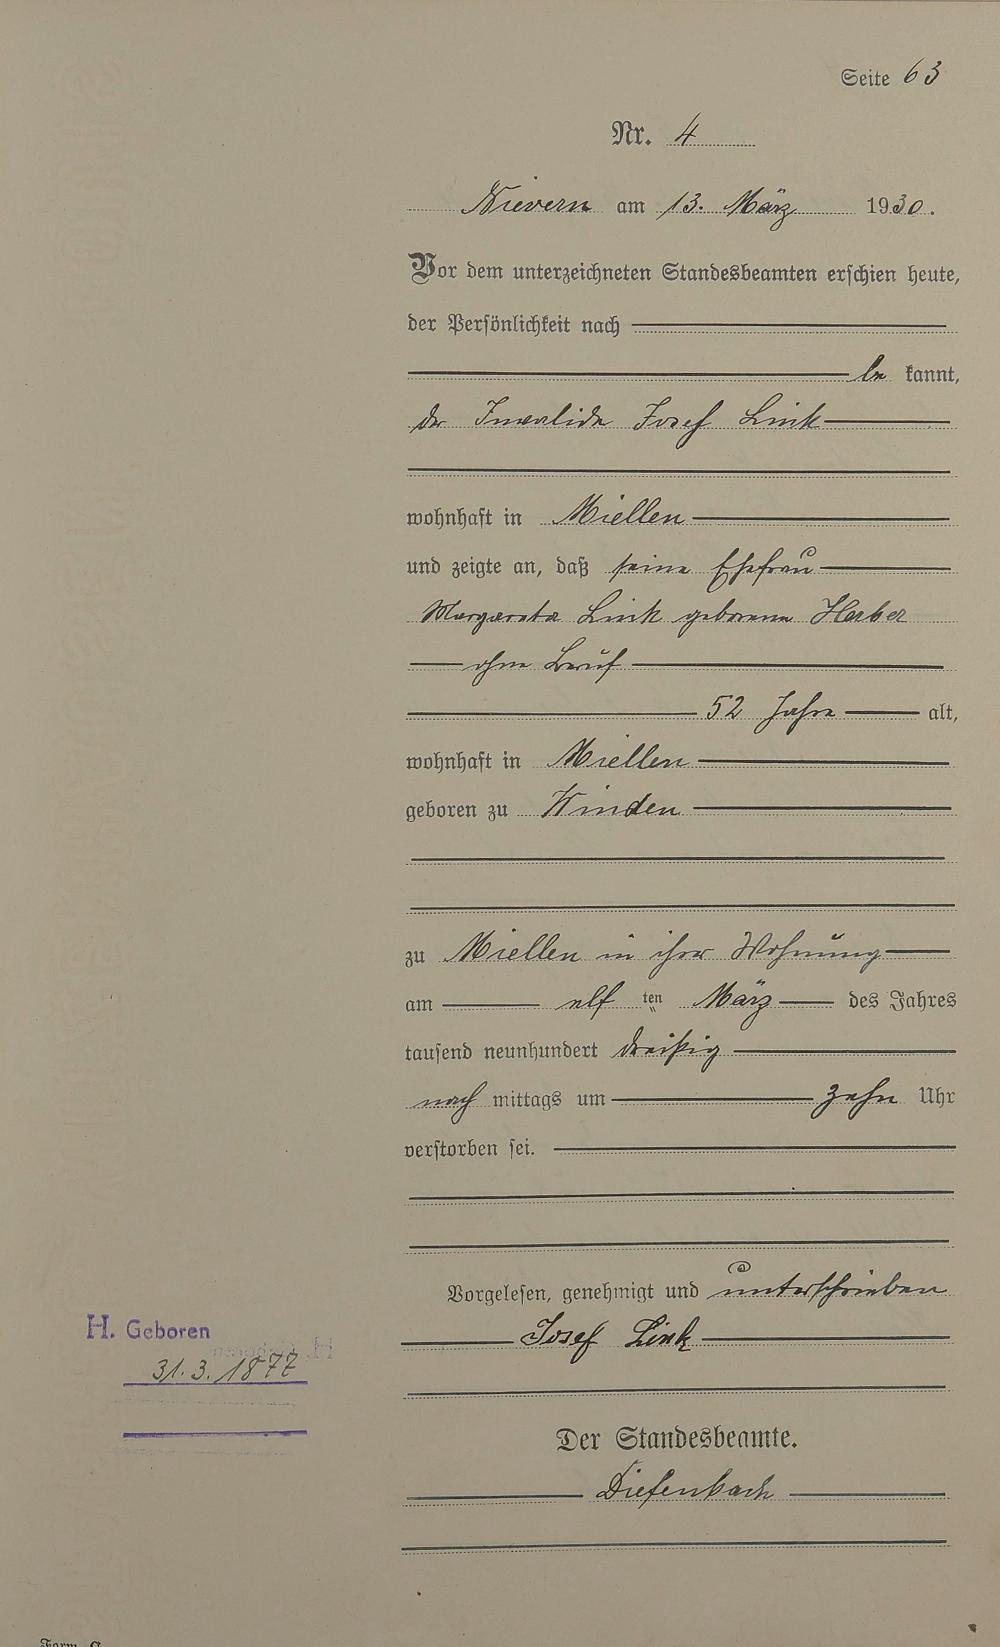 Seite 63
Nr. 4
Nievern am 13. März 1930.
Vor dem unterzeichneten Standesbeamten erschien heute,
der Persönlichkeit nach
be kannt,
der Invalide Josef Link
wohnhaft in Miellen
und zeigte an, daß seine Ehefrau
Margareta Link geborene Herber
ohne Beruf
52 Jahre alt,
wohnhaft in Miellen
geboren zu Winden
zu Miellen in ihrer Wohnung
am elf ten März des Jahres
tausend neunhundert dreißig
nach mittags um zehn Uhr
verstorben sei.
Vorgelesen, genehmigt und unterschrieben
Josef Link
H. Geboren
31.3.1877
Der Standesbeamte.
Diefenbach